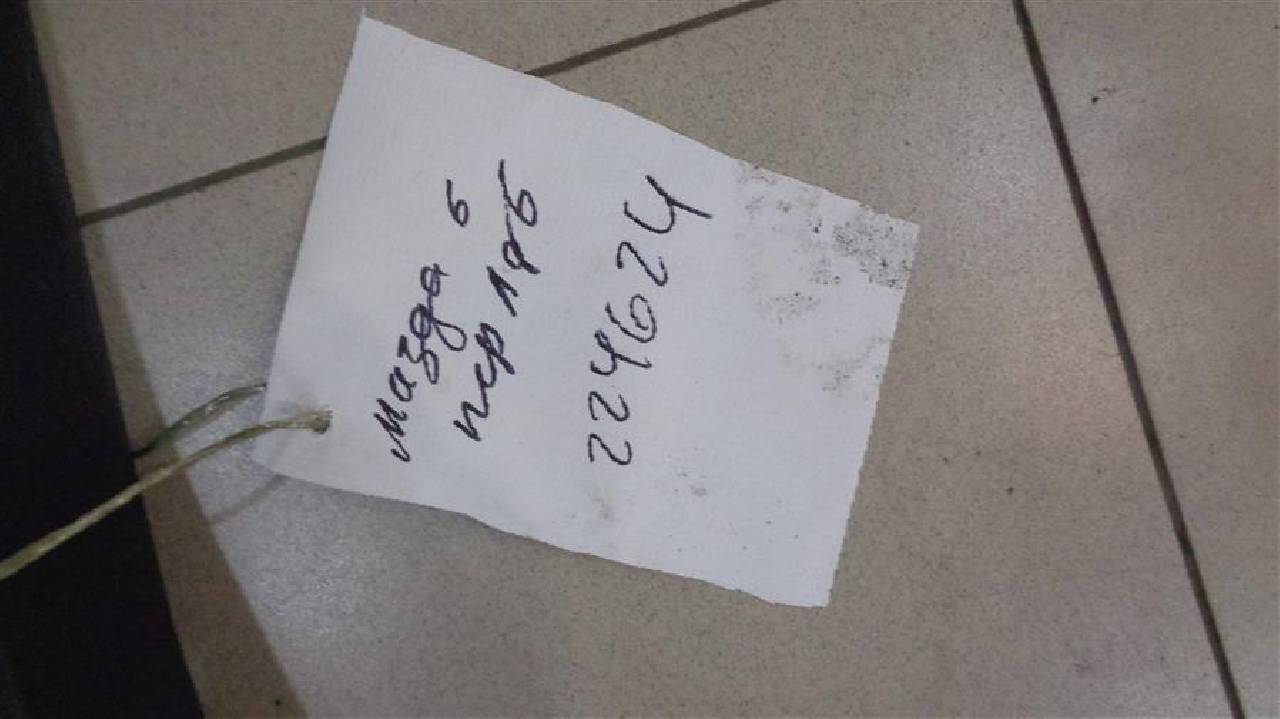 Мазда 6
пер лев
224624